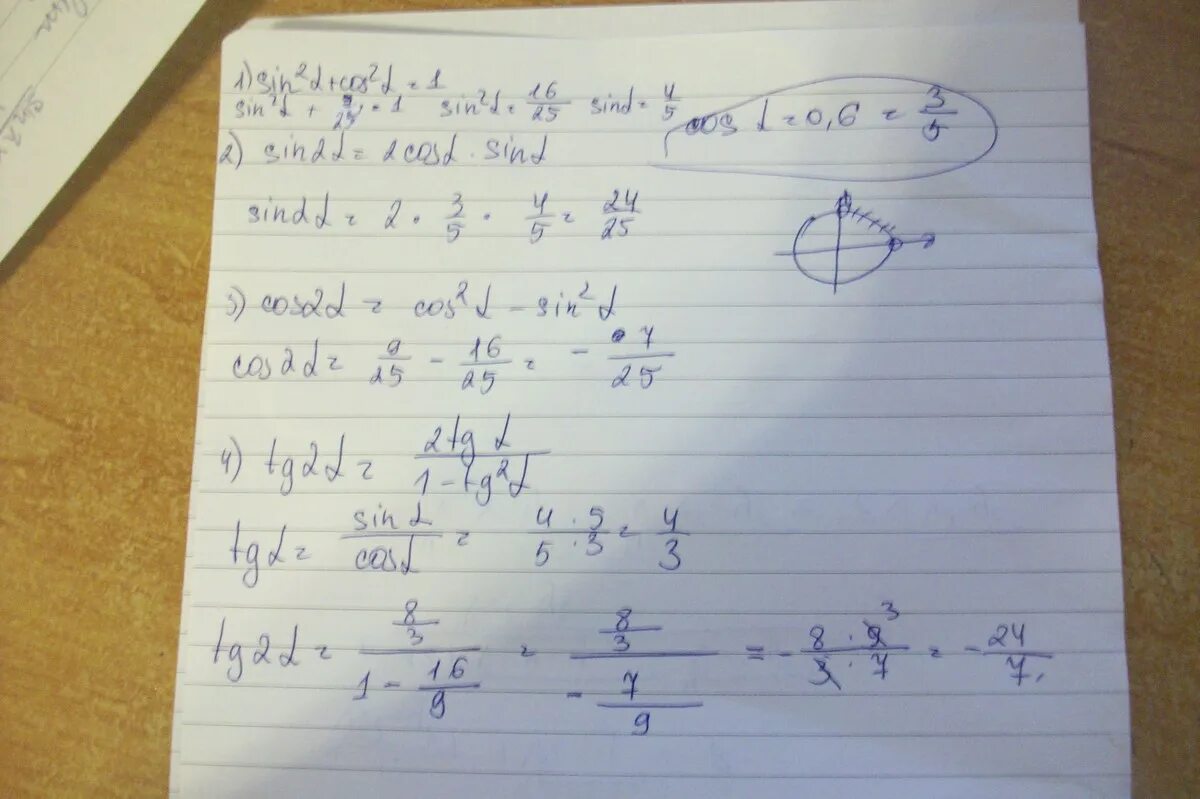 1) sin²α + cos²α = 1
sin²α + 9/25 = 1 sin²α = 16/25 sinα = 4/5
cos α = 0,6 = 3/5
2) sin2α = 2cosα · sinα
sin2α = 2 · 3/5 · 4/5 = 24/25
3) cos2α = cos²α - sin²α
cos2α = 9/25 - 16/25 = - 7/25
4) tg2α = 2tg α / 1 - tg²α
tgα = sinα / cosα = 4 · 5 / 5 · 3 = 4/3
tg2α = 8/3 / 1 - 16/9 = 8/3 / - 7/9 = - 8 · 9 3 / 3 · 7 = - 24/7.